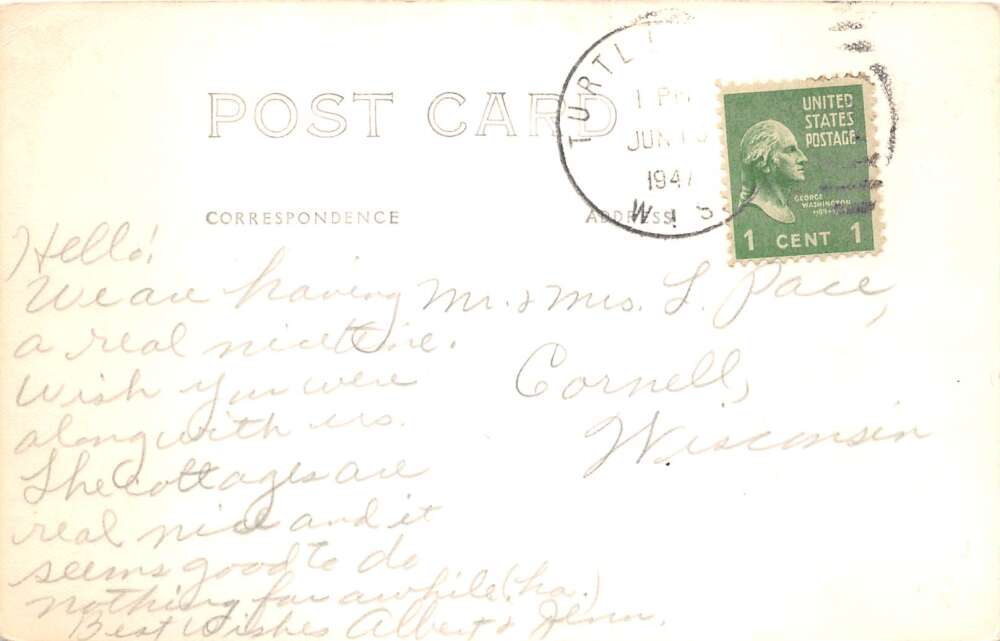 POST CARD
CORRESPONDENCE
ADDRESS
TURTLE
1 PM
JUN 1
1947
WIS
UNITED
STATES
POSTAGE
GEORGE
WASHINGTON
1 CENT 1
Hello!
We are having
a real nice time.
Wish you were
along with us.
The cottages are
real nice and it
seems good to do
nothing for awhile (ha.)
Best Wishes Albert &
Mr. & Mrs. L. Pace,
Cornell,
Wisconsin